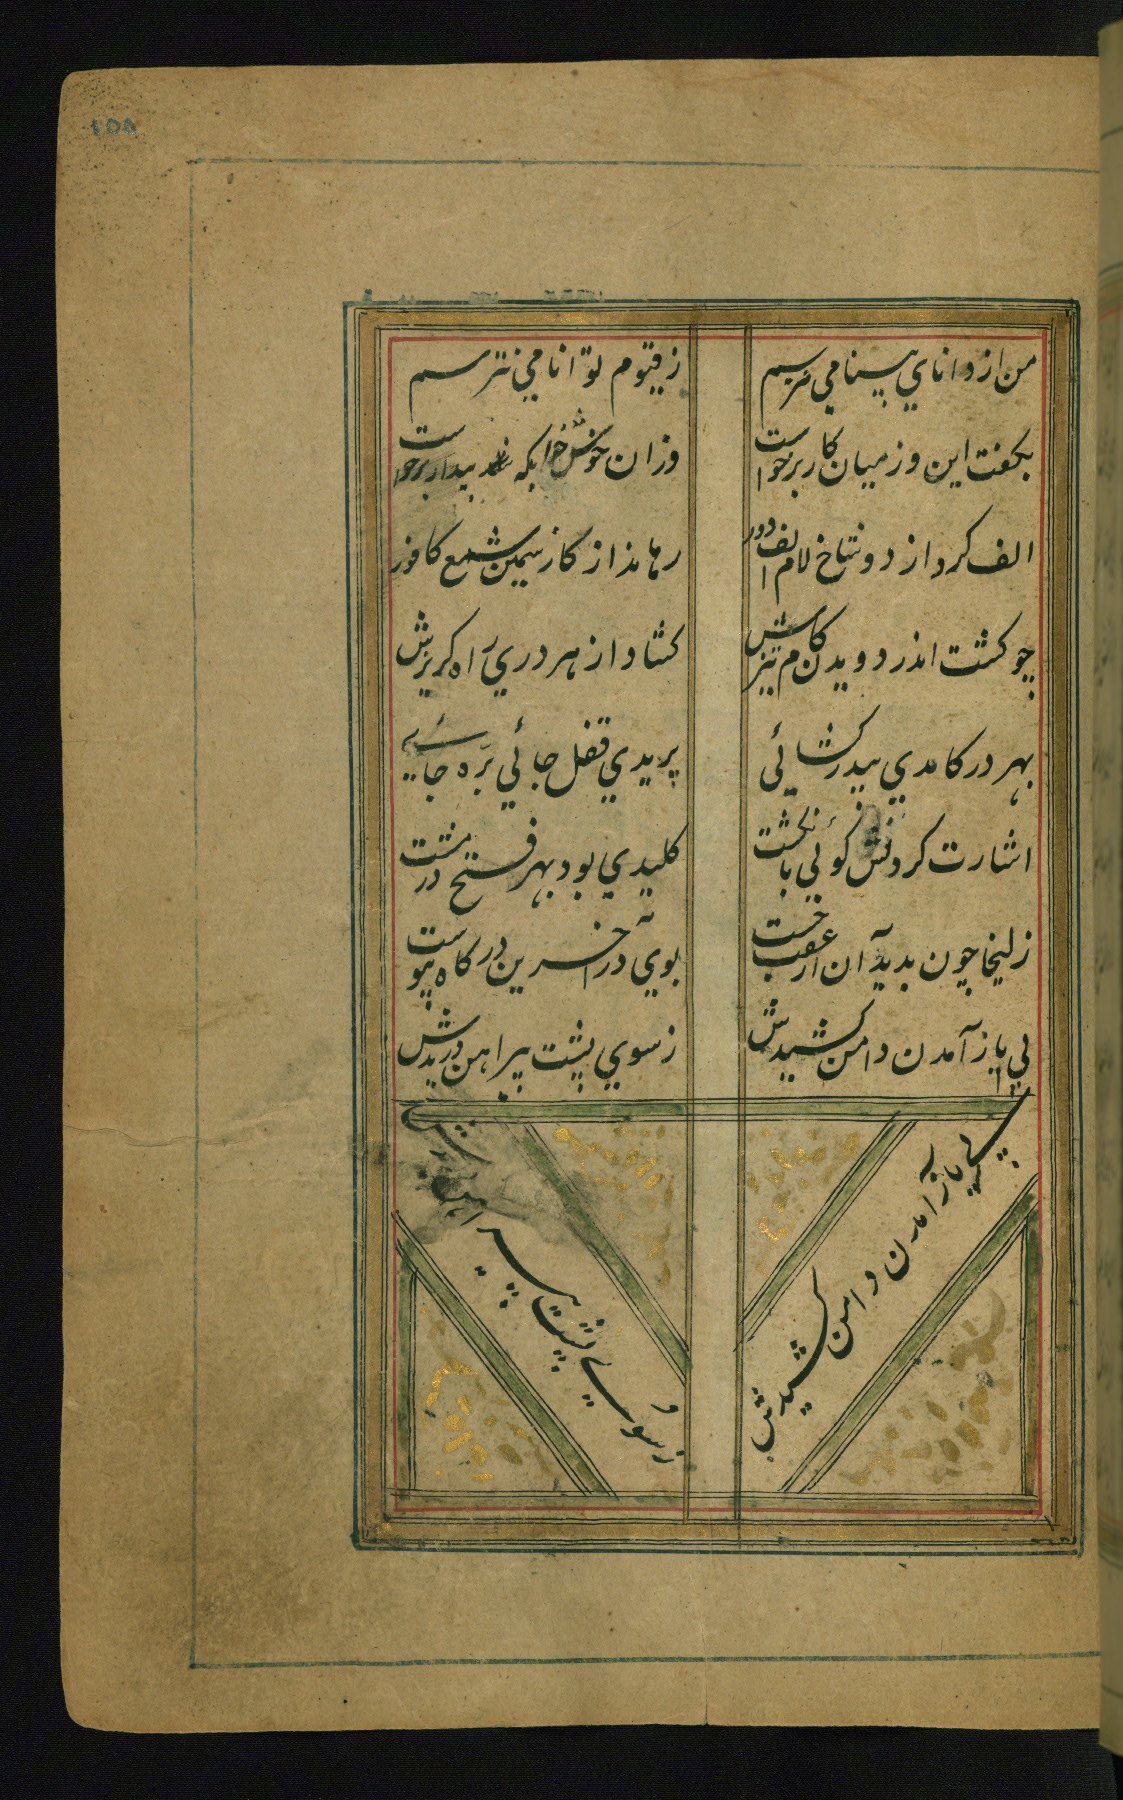 ١٥٥
من از دانای بینا می نترسم
ز قیوم توانا می نترسم
بگفت این وز میان کار برخواست
وزان خوش خوابگه بیدار برخواست
الف کرد از دو شاخ لام الف دور
رهاند از کاز سیمین شمع کافور
چو کشت اندر دویدن کام تیزش
کشاد از هر دری راه کریزش
بهر در کامدی بیدر کشائی
پریدی قفل جائی پره جائی
اشارت کردنش کوئی بانکشت
کلیدی بود بهر فتح در مشت
زلیخا چون بدید آن از عقب جست
بوی در آخرین درکاه پیوست
پی باز آمدن دامن کشیدش
ز سوی پشت پیراهن دریدش
پی باز آمدن دامن کشیدش
ز سوی پشت پیراهن